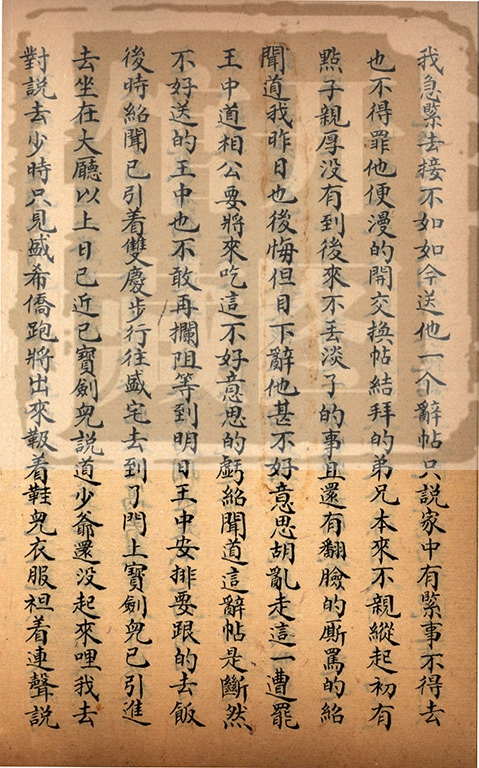 我急緊去接不如如今送他一个辭帖只說家中有緊事不得去
也不得罪他便漫的開交換帖結拜的弟兄本來不親縱起初有
㸃子親厚没有到後來不丢淡了的事且還有翻臉的厮罵的紹
聞道我昨日也後悔但目下辭他甚不好意思胡亂走這一遭罷
王中道相公要將來吃這不好意思的虧紹聞道這辭帖是斷然
不好送的王中也不敢再攔阻等到明日王中安排要跟的去飯
後時紹聞已引着雙慶步行往盛宅去到了門上寶劍兒已引進
去坐在大廳以上日已近巳寶劍兒說道少爺還没起來哩我去
對説去少時只見盛希僑跑將出來靸着鞋兒衣服袒着連聲説